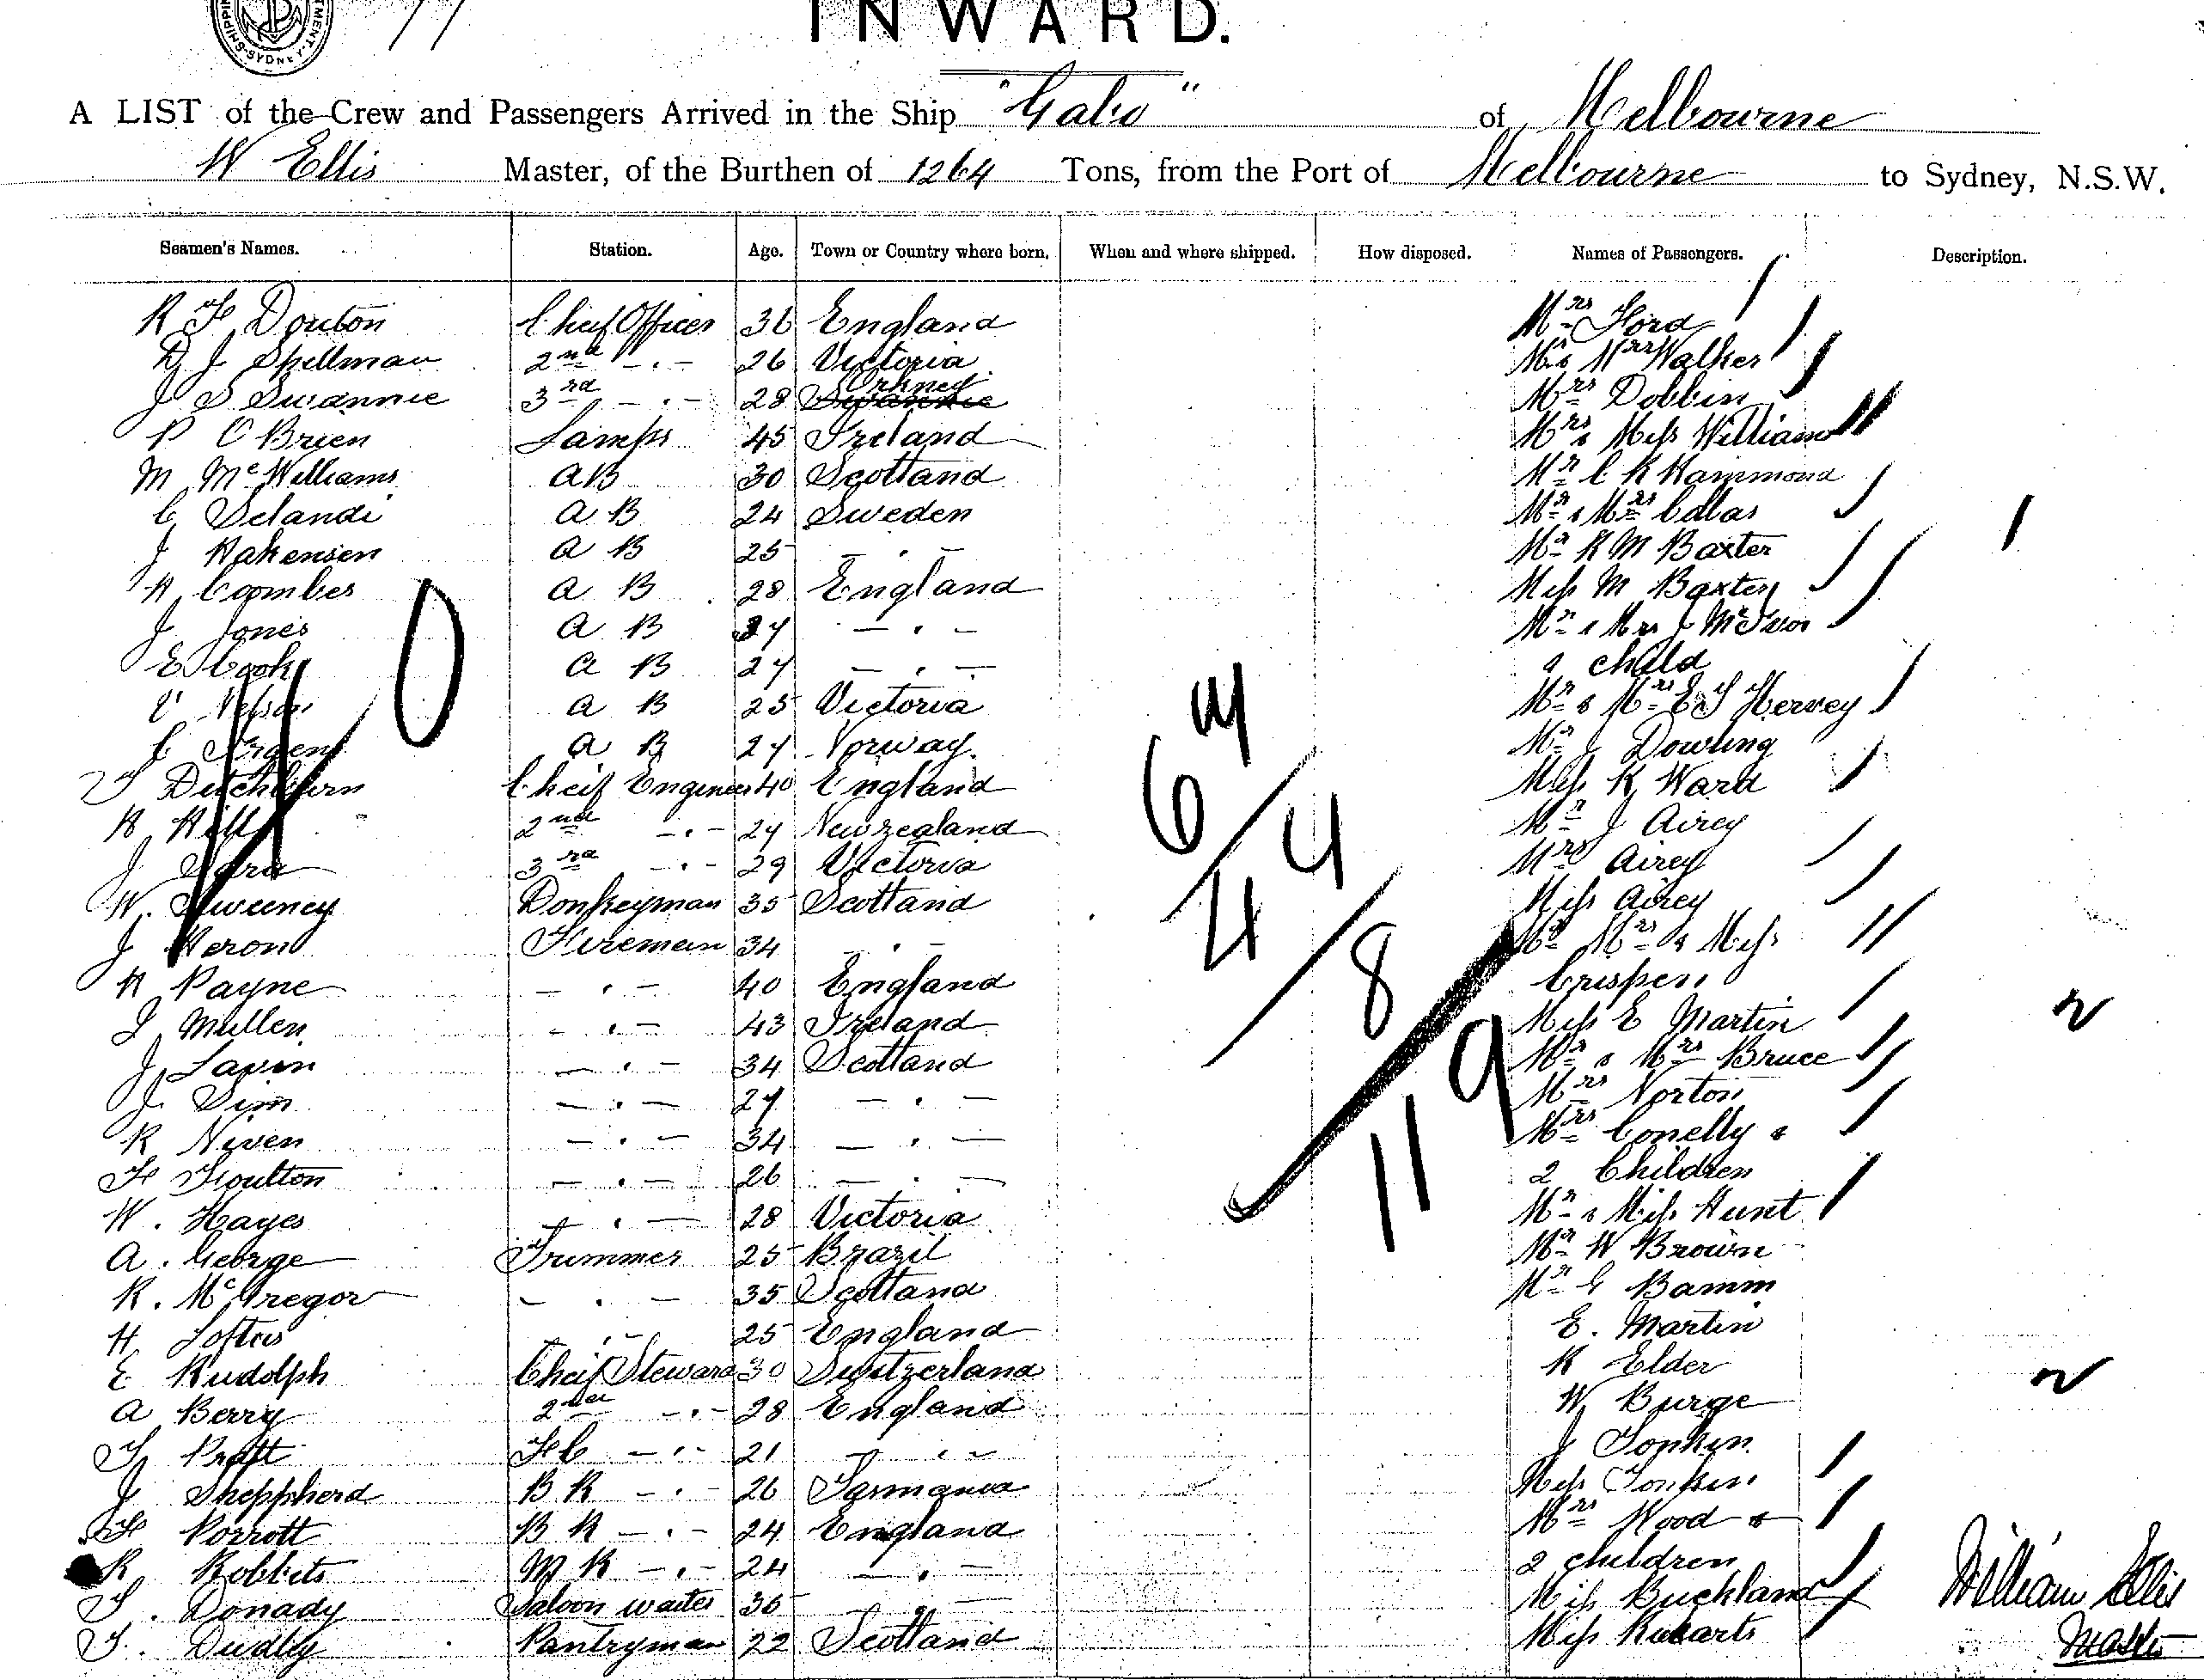 INWARD.
A LIST of the Crew and Passengers Arrived in the Ship "Gabo" of Melbourne
W Ellis Master, of the Burthen of 1264 Tons, from the Port of Melbourne to Sydney, N.S.W.
Seamen's Names. Station. Age. Town or Country where born. When and where shipped. How disposed. Names of Passengers. Description.
R F Douton Cheif Officer 36 England Mrs Ford
D J Spellman 2nd - . - 26 Victoria Mr & Mrs Walker
J S Swannie 3rd - . - 28 Orkney Mrs Dobbin
P O Brien Lamps 45 Ireland Mrs & Miss Williams
M McWilliams AB 30 Scotland Mr C R Hammond
C Selandi A B 24 Sweden Mr & Mrs
J Hakensen A B 25 - . - Mr R M Baxter
H Coombes A B 28 England Miss M Baxter
J Jones A B 27 - . - Mr & Mrs J McIvor
E Cook A B 27 - . - & child
Nelson A B 25 Victoria Mr & Mrs E S Hervey
C A B 27 Norway Mr J Dowling
T Ditchburn Cheif Engineer 40 England Miss K Ward
H Hill 2nd - . - 27 New Zealand Mr J Airey
J 3rd - . - 29 Victoria Mrs Airey
W. Sweeney Donkeyman 35 Scotland Miss Airey
J Heron Fireman 34 - . - Mr Mrs & Miss
H Payne - . - 40 England Crispen
J Mullen - . - 43 Ireland Miss E Martin
J Lavin - . - 34 Scotland Mr & Mrs Bruce
J Sim - . - 27 - . - Mrs Norton
R Niven - . - 34 - . - Mrs Conelly &
F Foulton - . - 26 - . - 2 Children
W. Hayes - . - 28 Victoria Mr & Miss Hunt
A. George Trimmer 25 Brazil Mr W Brown
R. McGregor - . - 35 Scotland Mr G Bamm
H Loftus - . - 25 England E. Martin
E Rudolph Cheif Steward 30 Switzerland R Elder
A Berry 2nd - . - 28 England W Burge
T Pratt F C - . - 21 - . - J Tonkin
J Sheppherd B R - . - 26 Tasmania Miss Tonkin
F Porrott B R - . - 24 England Mrs Wood &
R Robbits M R - . - 24 - . - 2 children
T. Donady Saloon waiter 36 - . - Miss Buckland
T. Dudly Pantryman 22 Scotland Miss
William Ellis
Master